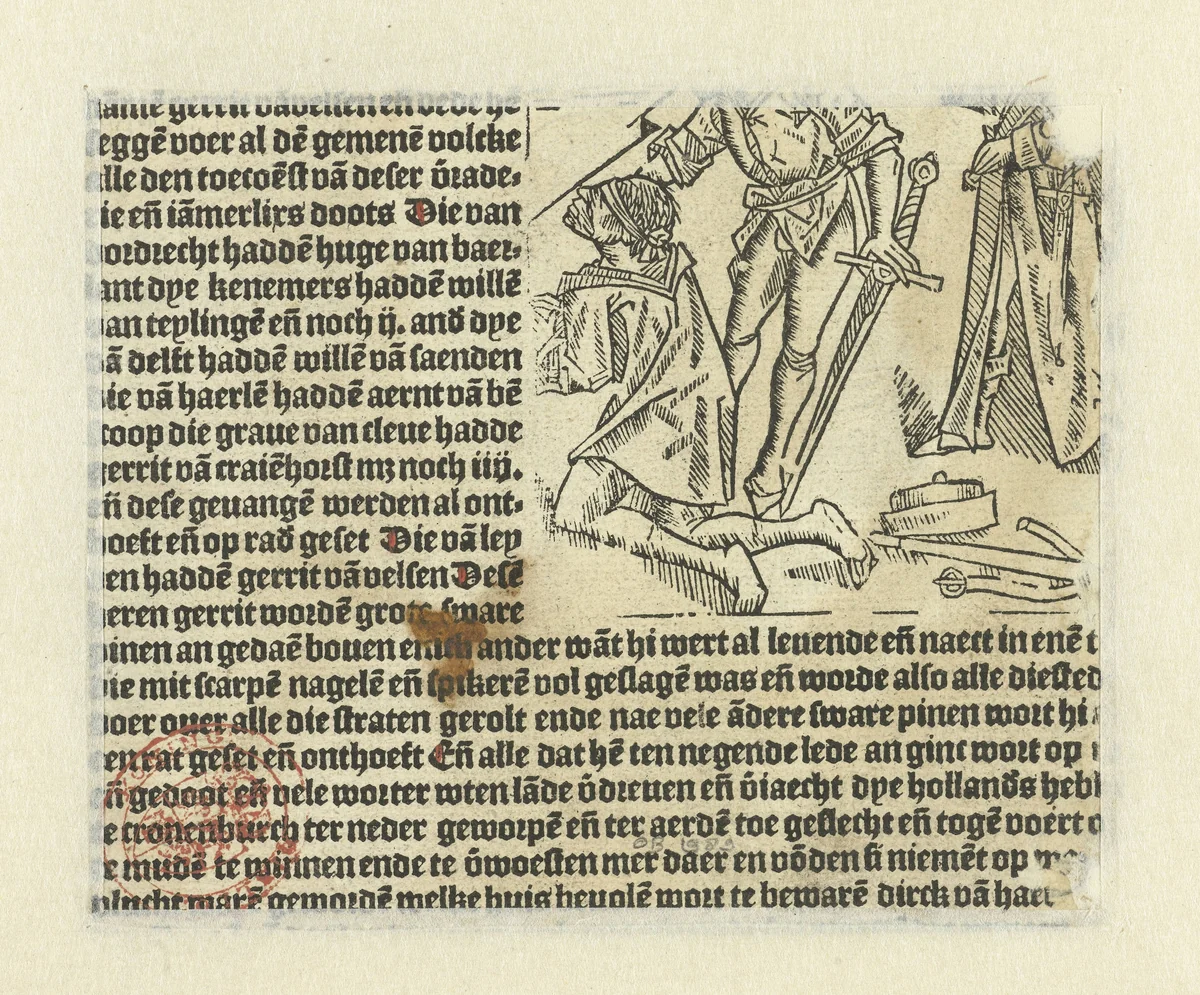 gerrit vāvelsen en dede he
eggē voer al dē gemenē volcke
lle den toecoēst vā deser v̄rade⸗
ie en̄ iāmerlixs doots Die van
ordrecht haddē huge van baer⸗
ant dye kenemers haddē willē
an teylingē en̄ noch ij. and̄ dye
ā delft haddē willē vā saenden
ie vā haerlē haddē aernt vā bē
coop die graue van cleue hadde
errit vā craiēhorst mz noch iiij.
n̄ dese geuangē werden al ont⸗
hoeft en̄ op rad̄ geset Die vā ley
en haddē gerrit vā velsen Desē
eren gerrit wordē grote sware
pinen an gedaē bouen enich ander wāt hi wert al leuende en̄ naect in enē t
ie mit scarpē nagelē en̄ spikerē vol geslagē was en̄ worde also alle die sted
oer ouer alle die straten gerolt ende nae vele ādere sware pinen wort hi
en rat geset en̄ onthoeft En̄ alle dat hē ten negende lede an ginc wort op
n̄ gedoot en̄ vele worter wten lāde v̄dreuen en̄ v̄iaecht dye holland̄s hebb
e cronenburch ter neder geworpē en̄ ter aerdē toe geslecht en̄ togē voert
e mudē te winnen ende te v̄woesten mer daer en vōden si niemēt op
vlucht warē gewordē welke huis beuolē wort te bewarē dirck vā haer